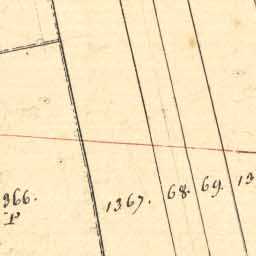 366.
P
1367. 68. 69. 13